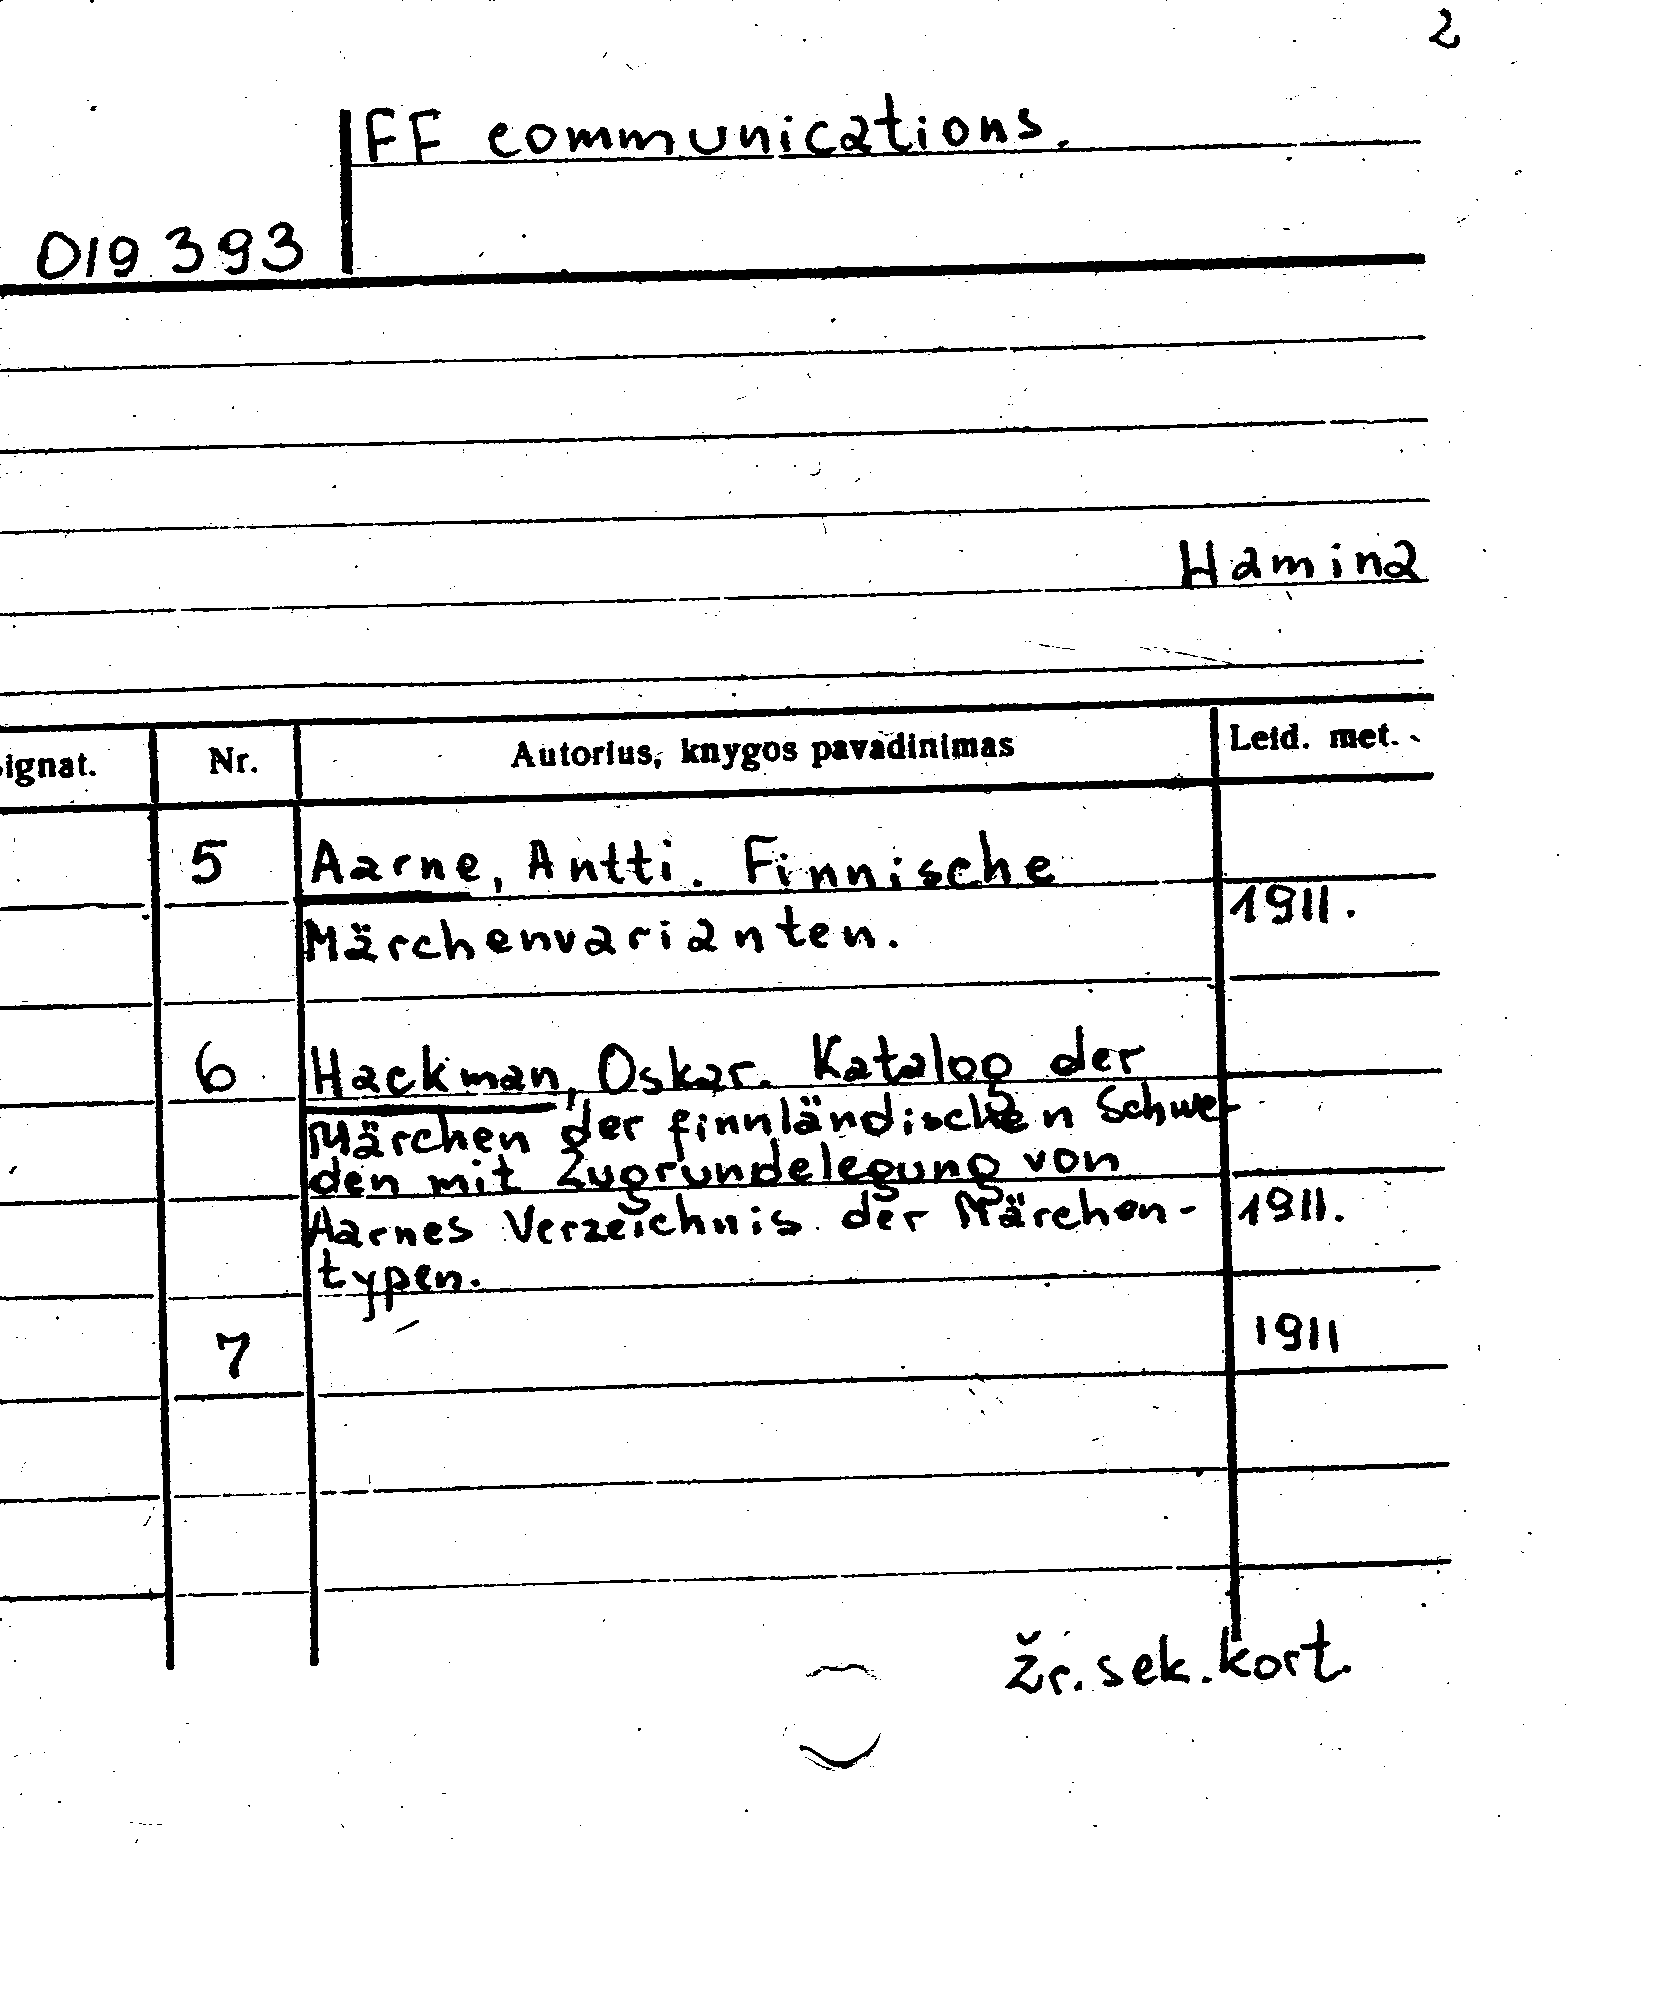 2
FF communications.
019 393
Hamina
ignat. Nr. Autorius, knygos pavadinimas Leid. met.
5 Aarne, Antti. Finnische
1911.
Märchenvarianten.
6 Hackman, Oskar. Katalog der
Märchen der finnländischen Schwe-
den mit Zugrundelegung von
Aarnes Verzeichnis der Märchen- 1911.
typen.
7 1911
Žr. sek. kort.